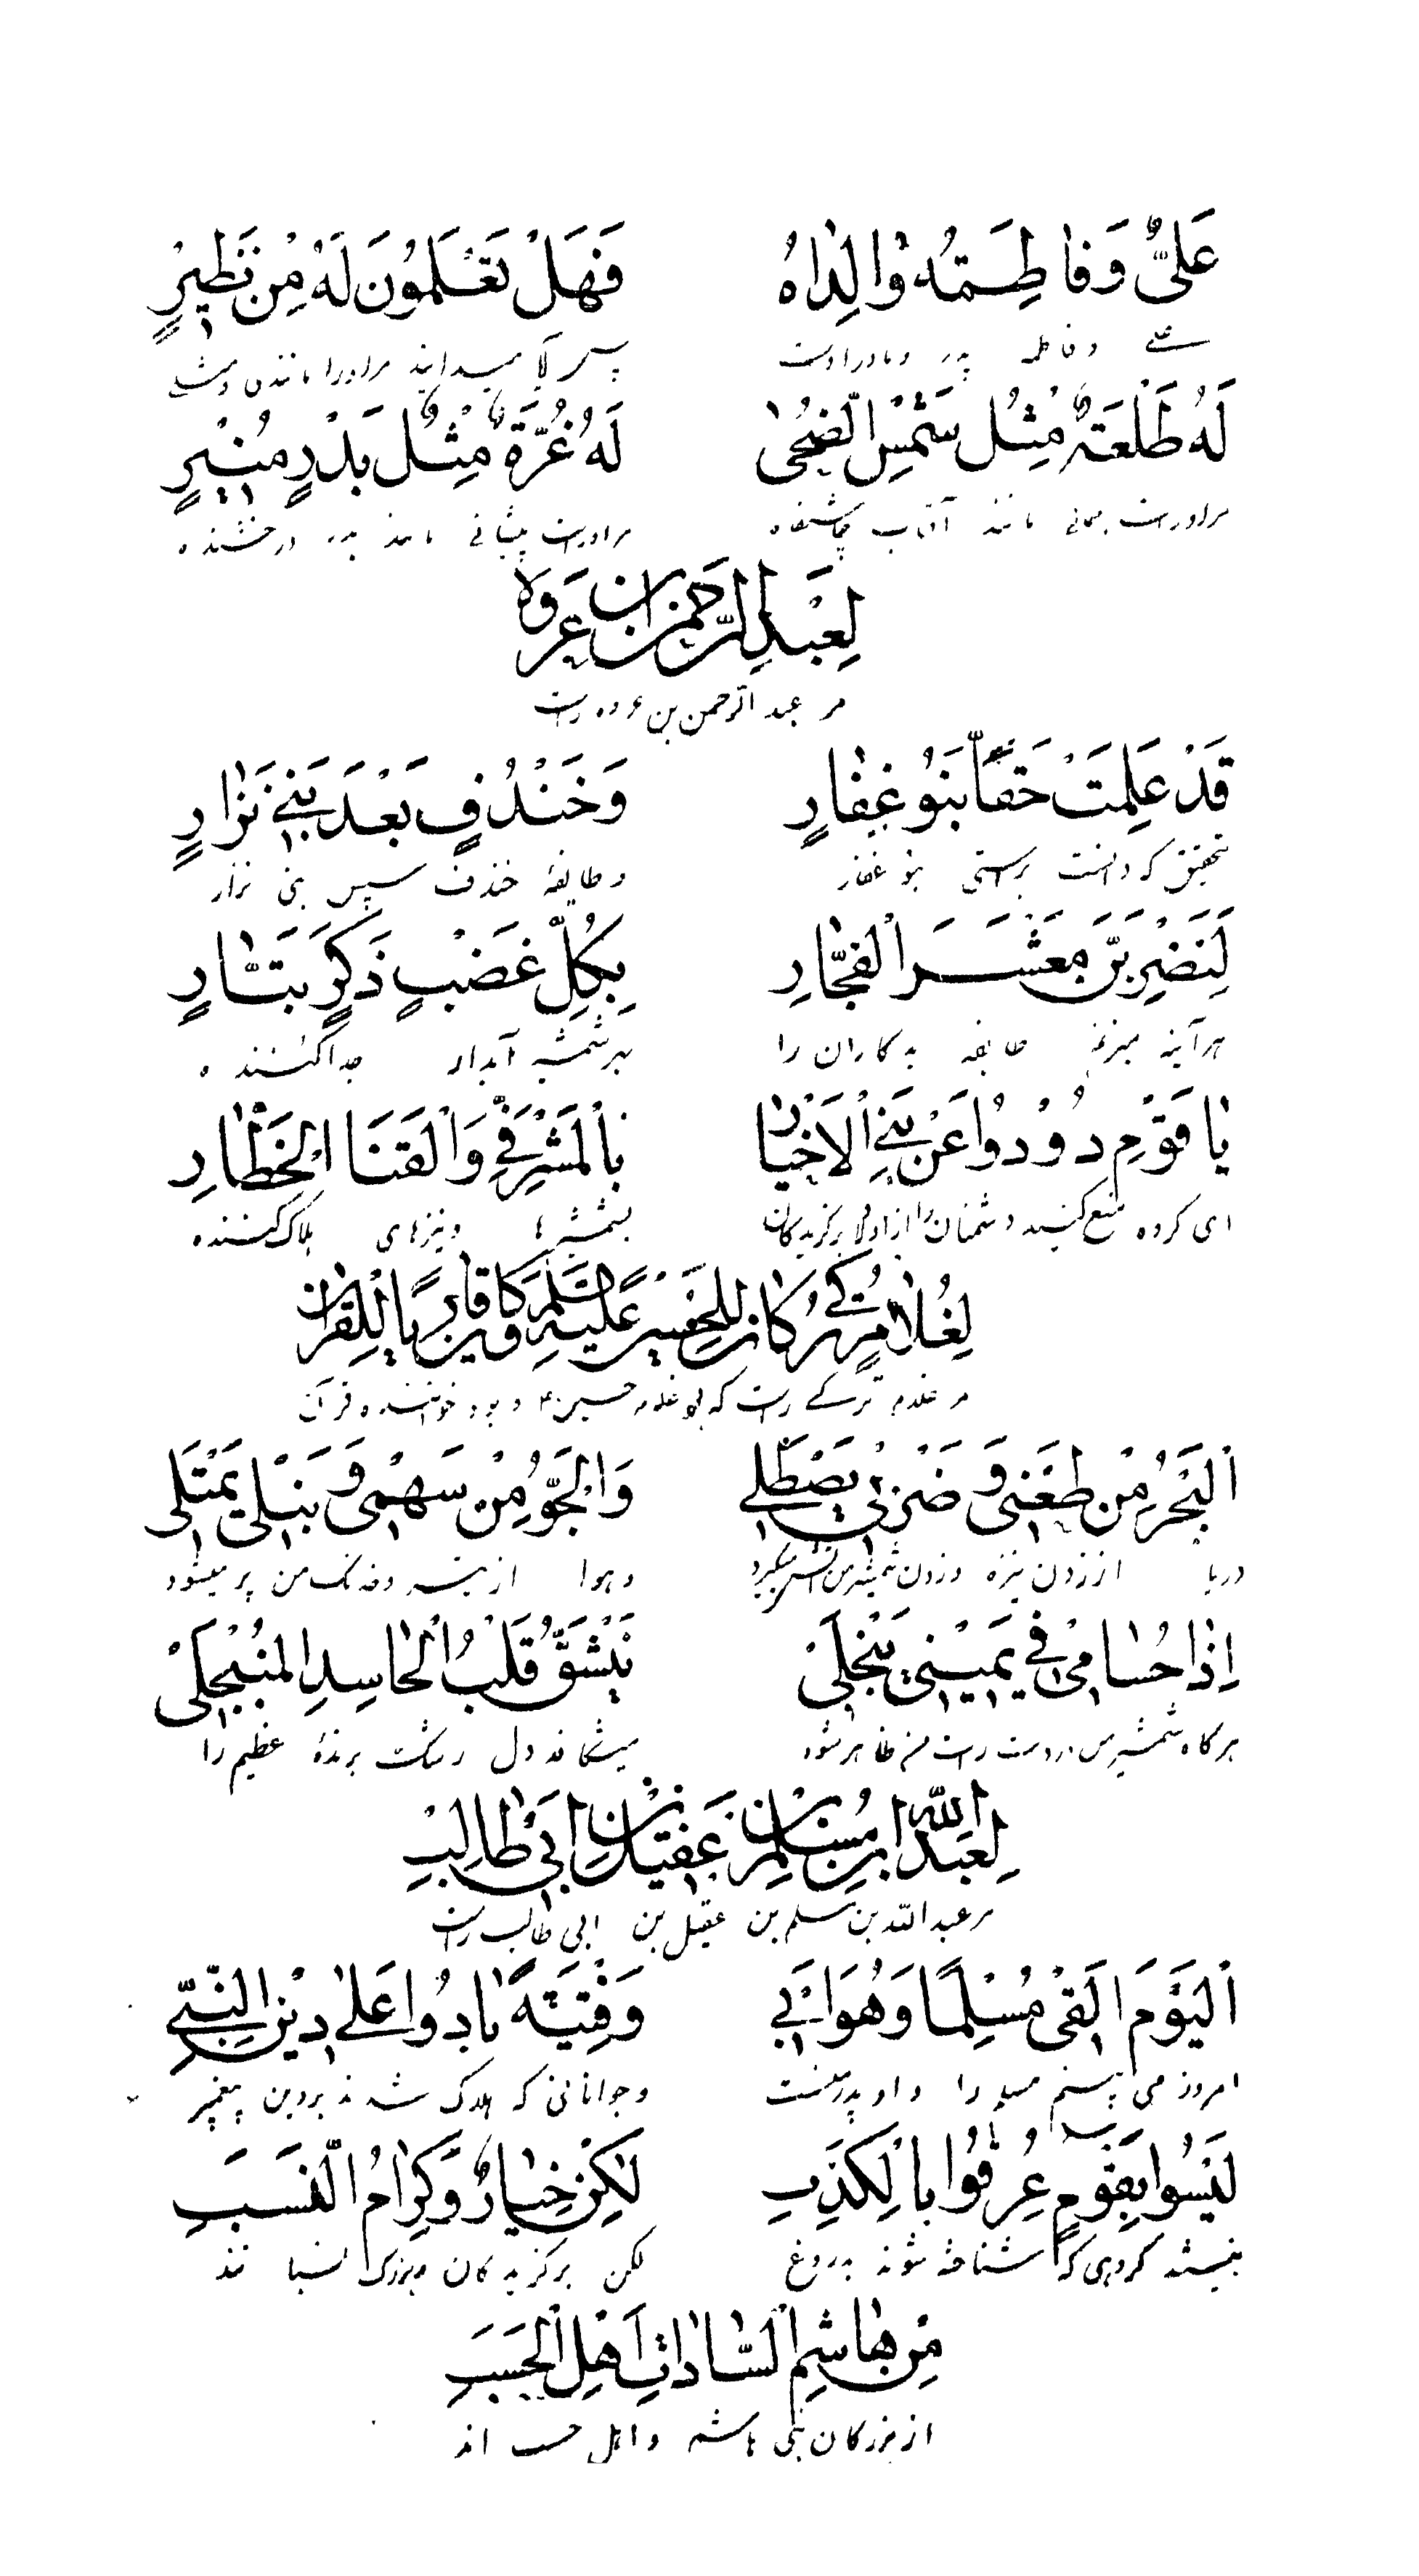 عَلِيٌّ وَفَاطِمَةُ وَالِدَاهُ فَهَلْ تَعْلَمُونَ لَهُ مِنْ نَظِيرٍ
علی و فاطمه پدر و مادر اوست پس آیا میدانید مر اورا مانندی و مثلی
لَهُ طَلْعَةٌ مِثْلُ شَمْسِ الضُّحَىٰ لَهُ غُرَّةٌ مِثْلُ بَدْرٍ مُنِيرٍ
مر اوراست مانند آفتاب چاشتگاه مر اوراست پیشانی مانند بدر درخشنده
لِعَبْدِ الرَّحْمٰنِ ابْنِ عُرْوَه
مر عبد الرحمن بن عروه راست
قَدْ عَلِمَتْ حَقًّا بَنُو غِفَارٍ وَخَنْدُفٍ بَعْدَ بَنِي نِزَارٍ
بتحقیق که دانست براستی بنو غفار و طایفهٔ خندف سپس بنی نزار
لَنَضْرِبَنَّ مَعْشَرَ الْفُجَّارِ بِكُلِّ غَضْبٍ ذَكَرٍ بَتَّارٍ
هر آینه میزنم طایفه بدکاران را بهر شمشیر آبدار جدا کننده
يَا قَوْمِ دُودُوا عَنْ بَنِي الْأَخْيَارِ بِالْمَشْرَفِيِّ وَالْقَنَا الْخَطَّارِ
ای گروه منع کنید دشمنان را از اولاد برگزیدگان بشمشیرها و نیزهای هلاک کننده
لِغُلَامٍ تُرْكِيٍّ كَانَ لِلْحُسَيْنِ عَلَيْهِ السَّلَامُ وَكَانَ قَارِيًا لِلْقُرْآنِ
مر غلام ترکی راست که بود غلام حسین ع و بود خواننده قرآن
اَلْبَحْرُ مِنْ طَعْنِي وَضَرْبِي يَصْطَلِي وَالْجَوُّ مِنْ سَهْمِي وَنَبْلِي يَمْتَلِي
دریا از زدن نیزه و زدن شمشیر من آتش میگیرد و هوا از تیر و خدنک من پر میشود
اِذَا حُسَامِي فِي يَمِينِي يَنْجَلِي يَنْشَقُّ قَلْبُ الْحَاسِدِ الْمُبَجَّلِ
هر گاه شمشیر من در دست راست من ظاهر شود میشکافد دل رشک برندهٔ عظیم را
لِعَبْدِ اللّٰهِ ابْنِ مُسْلِمِ بْنِ عَقِيلِ بْنِ اَبِي طَالِبٍ
مر عبد الله بن مسلم بن عقیل بن ابی طالب راست
اَلْيَوْمَ اَلْقَى مُسْلِمًا وَهُوَ اَبِي وَفِتْيَةً بَادُوا عَلَى دِينِ النَّبِيِّ
امروز می بینم مسلم را و او پدر منست و جوانانی که هلاک شدند بر دین پیغمبر
لَيْسُوا بِقَوْمٍ عُرِفُوا بِالْكَذِبِ لٰكِنْ خِيَارٌ وَكِرَامُ النَّسَبِ
نیستند گروهی که شناخته شوند بدروغ لکن برگزیدگان و بزرگ نسبانند
مِنْ هَاشِمِ السَّادَاتِ اَهْلِ الْحَسَبِ
از بزرگان بنی هاشم و اهل حسب اند